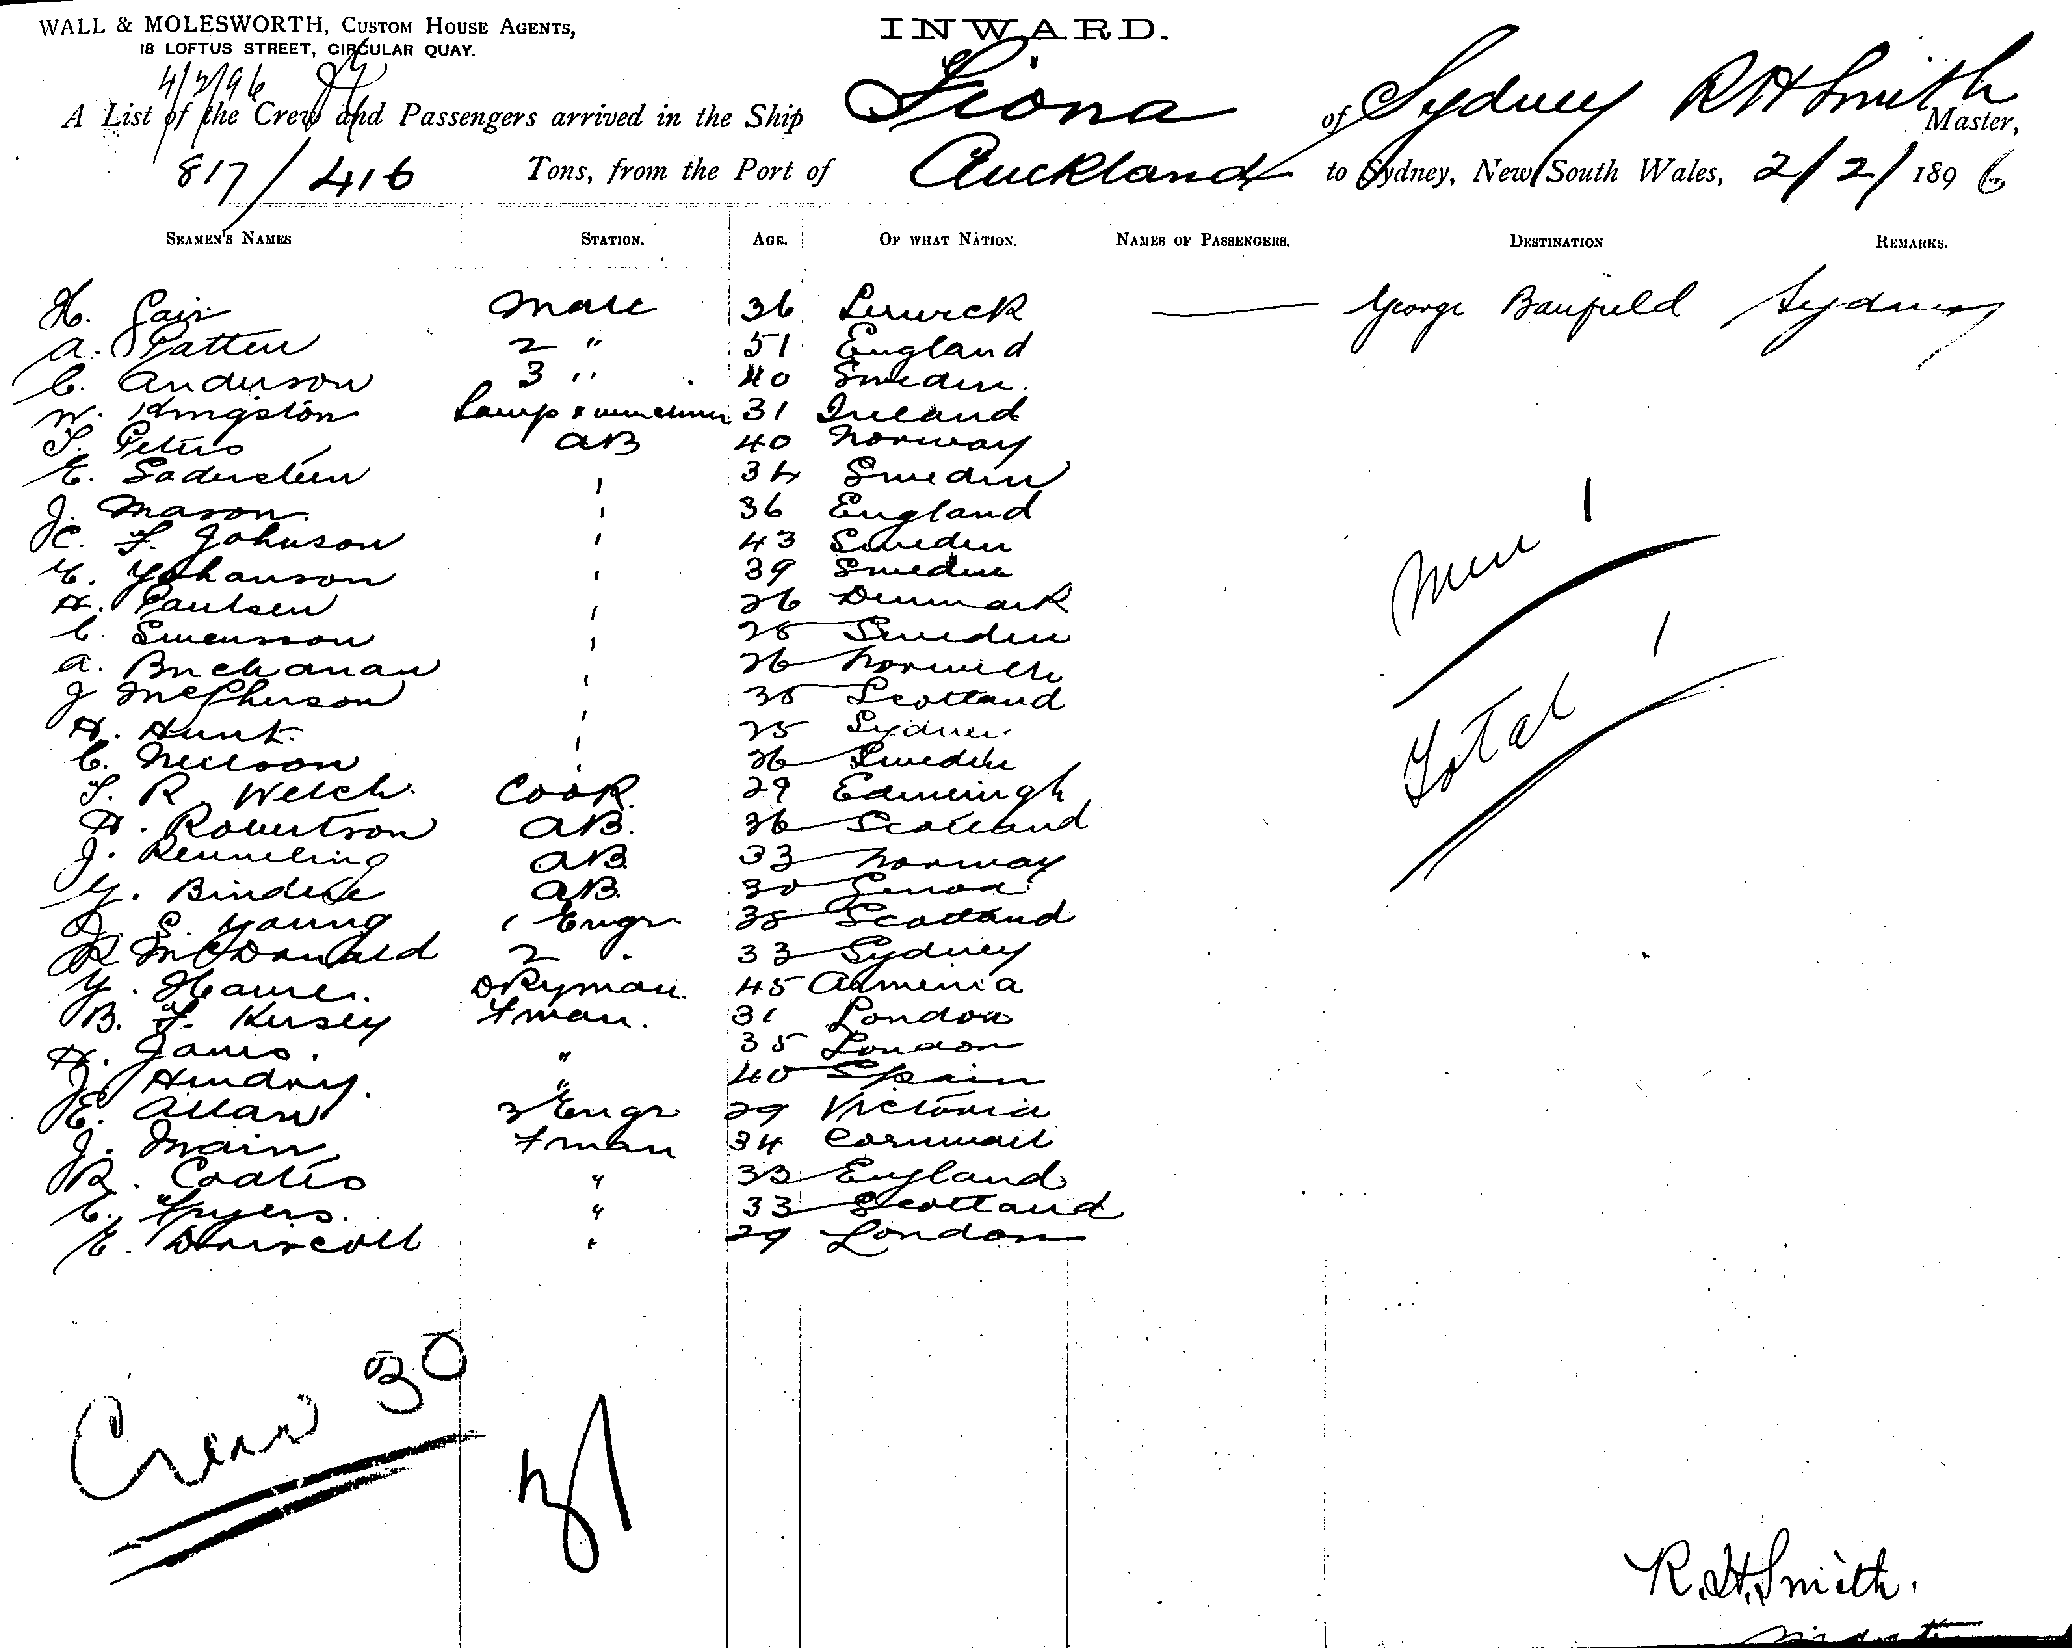 WALL & MOLESWORTH, CUSTOM HOUSE AGENTS,
18 LOFTUS STREET, CIRCULAR QUAY.
INWARD.
4/2/96
A List of the Crew and Passengers arrived in the Ship Fiona of Sydney R H Smith Master,
817/416 Tons, from the Port of Auckland to Sydney, New South Wales, 2/2/1896
SEAMEN'S NAMES STATION. AGE. OF WHAT NATION. NAMES OF PASSENGERS. DESTINATION REMARKS.
H. Gair Mate 36 Lerwick — George Banfield Sydney
A. Patten 2 " 51 England
C. Anderson 3 " 40 Sweden
W. Kingston Lamp 31 Ireland
T. Peters AB 40 Norway
E. Sodersteen 34 Sweden
J. Mason 36 England
C. F. Johnson 43 Sweden
E. Yohanson 39 Sweden
H. Paulsen 26 Denmark
C. Swensson 25 Sweden
A. Buchanan 26 Norwich
J McPherson 35 Scotland
H. Hunt 25 Sydney
C. Neilson 26 Sweden
T. R Welch Cook 29
H. Robertson AB. 36 Scotland
J. AB 33 Norway
G. AB. 30 Genoa
J. S. Young 1 Engr 38 Scotland
R McDonald 2 33 Sydney
Y. DKyman 45 Armenia
B. F. Kersey Fman. 31 London
H. James. " 35 London
J. Hendry. " 40 Spain
E. Allan 3 Engr 29 Victoria
J. Main Fman 34 Cornwall
R. Coates " 33 England
C. Spyers. " 33 Scotland
E. Driscoll " 29 London
Men 1
Total 1
Crew 30
31
R. H. Smith.
Master